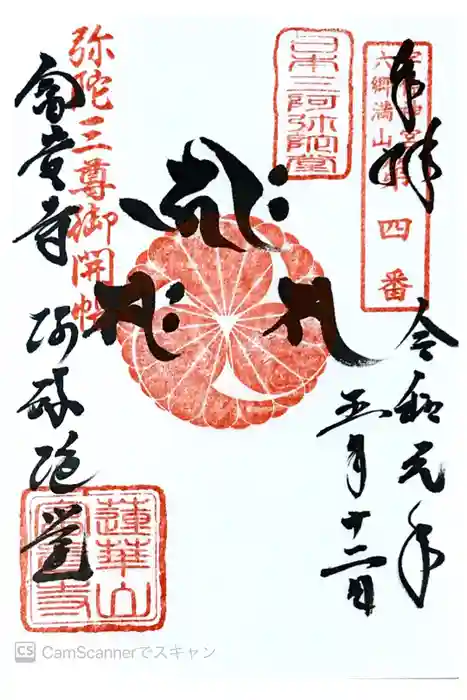 奉拝
六郷満山
第四番
令和元年
五月十二日
日本三阿弥陀堂
弥陀三尊御開帳
富貴寺 阿弥陀堂
蓮華山
富貴寺
CamScannerでスキャン